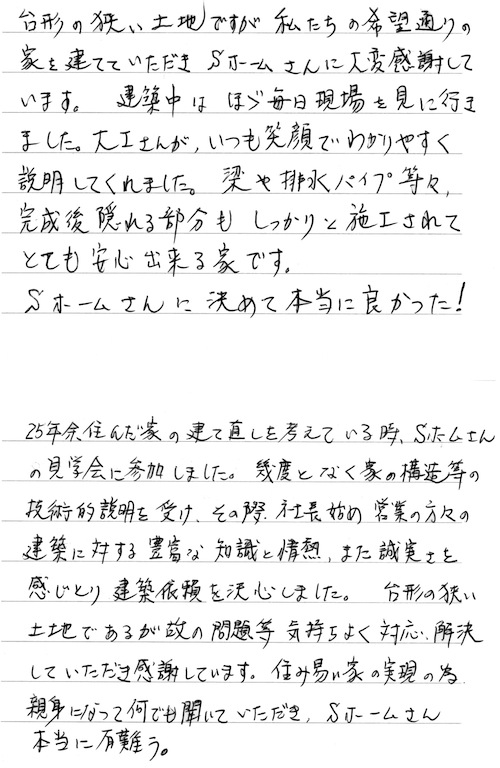 台形の狭い土地ですが 私たちの希望通りの
家を建てていただき Sホームさんに大変感謝して
います。 建築中は ほぼ毎日現場を見に行き
ました。大工さんが、いつも笑顔でわかりやすく
説明してくれました。 梁や排水パイプ等々、
完成後隠れる部分も しっかりと施工されて
とても安心出来る家です。
Sホームさんに決めて本当に良かった!
25年余住んだ家の建て直しを考えている時、Sホームさん
の見学会に参加しました。 幾度となく家の構造等の
技術的説明を受け、その際、社長始め 営業の方々の
建築に対する豊富な知識と情熱、また誠実さを
感じとり 建築依頼を決心しました。 台形の狭い
土地であるが故の問題等 気持ちよく対応、解決
していただき感謝しています。 住み易い家の実現の為
親身になって何でも聞いていただき、Sホームさん
本当に有難う。